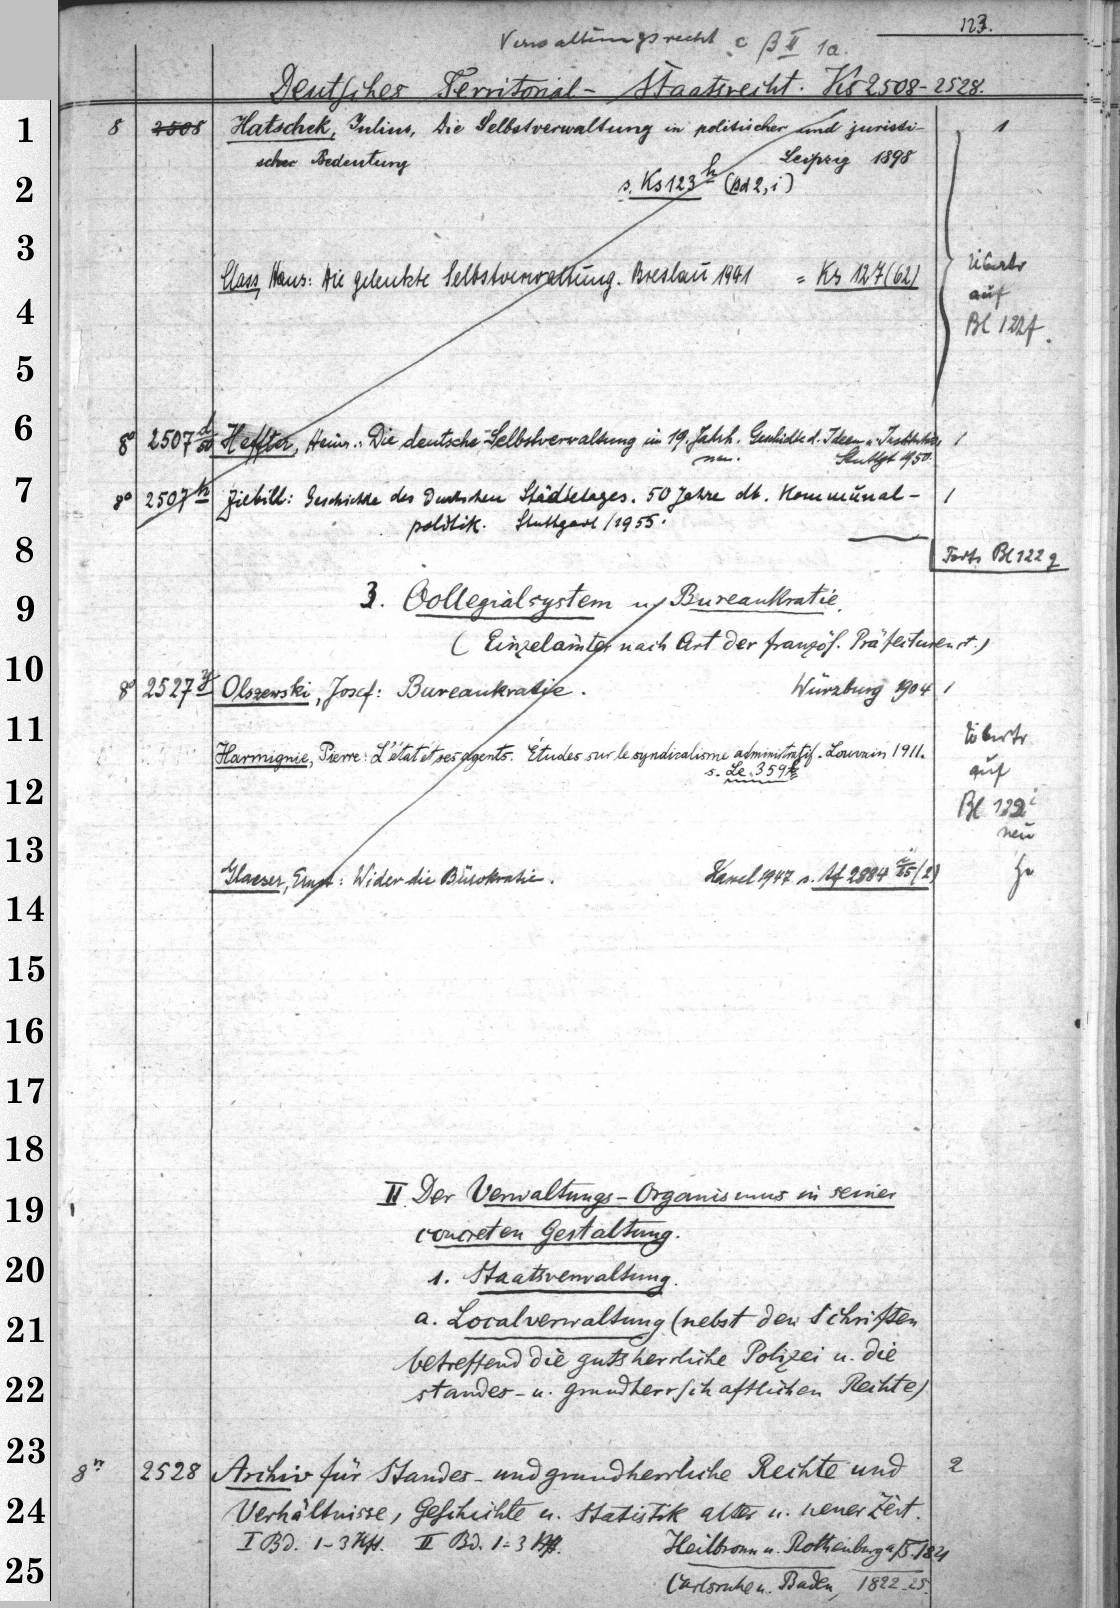 123.
Verwaltungsrecht c β II 1a.
Deutsches Territorial- Staatsrecht. Ks 2508-2528.
1 8 2508 Hatschek, Julius, Die Selbstverwaltung in politischer und juristi- 1
scher Bedeutung Leipzig 1898
2 s. Ks 123 h (Bd 2, i)
3
Class, Hans: Die gelenkte Selbstverwaltung. Breslau 1941 = Ks 127 (62) Übertr
4 auf
Bl 122f.
5
6 8° 2507 d/50 Heffter, Heinr.: Die deutsche Selbstverwaltung im 19. Jahrh. Geschichte d. Ideen u. Institutio 1
nen. Stuttgt 1950.
7 8° 2507 Ziebill: Geschichte des Deutschen Städtetages. 50 Jahre dt. Kommunal- 1
politik. Stuttgart / 1955.
8 Forts. Bl 122 g
9 3. Collegialsystem u. Bureaukratie.
(Einzelämter nach Art der französ. Präfecturen etc.)
10 8° 2527 Olszewski, Josef: Bureaukratie. Würzburg 1904 1
11 Übertr
Harmignie, Pierre: L'état et ses agents. Études sur le syndicalisme administratif. Louvain 1911.
s. Le 359 auf
12 Bl 122 i
neu
13
Glaeser, Ernst: Wider die Bürokratie. Kassel 1947 s. 2884 (2)
14
15
16
17
18
19 II. Der Verwaltungs-Organismus in seiner
concreten Gestaltung.
20 1. Staatsverwaltung.
21 a. Localverwaltung (nebst den Schriften
betreffend die gutsherrliche Polizei u. die
22 standes- u. grundherrschaftlichen Rechte)
23 8° 2528 Archiv für Standes- und grundherrliche Rechte und 2
24 Verhältnisse, Geschichte u. Statistik alter u. neuer Zeit.
I Bd. 1-3 Hft. II Bd. 1-3 Hft. Heilbronn u. Rothenburg a/T. 1821
25 Carlsruhe u. Baden, 1822-25.